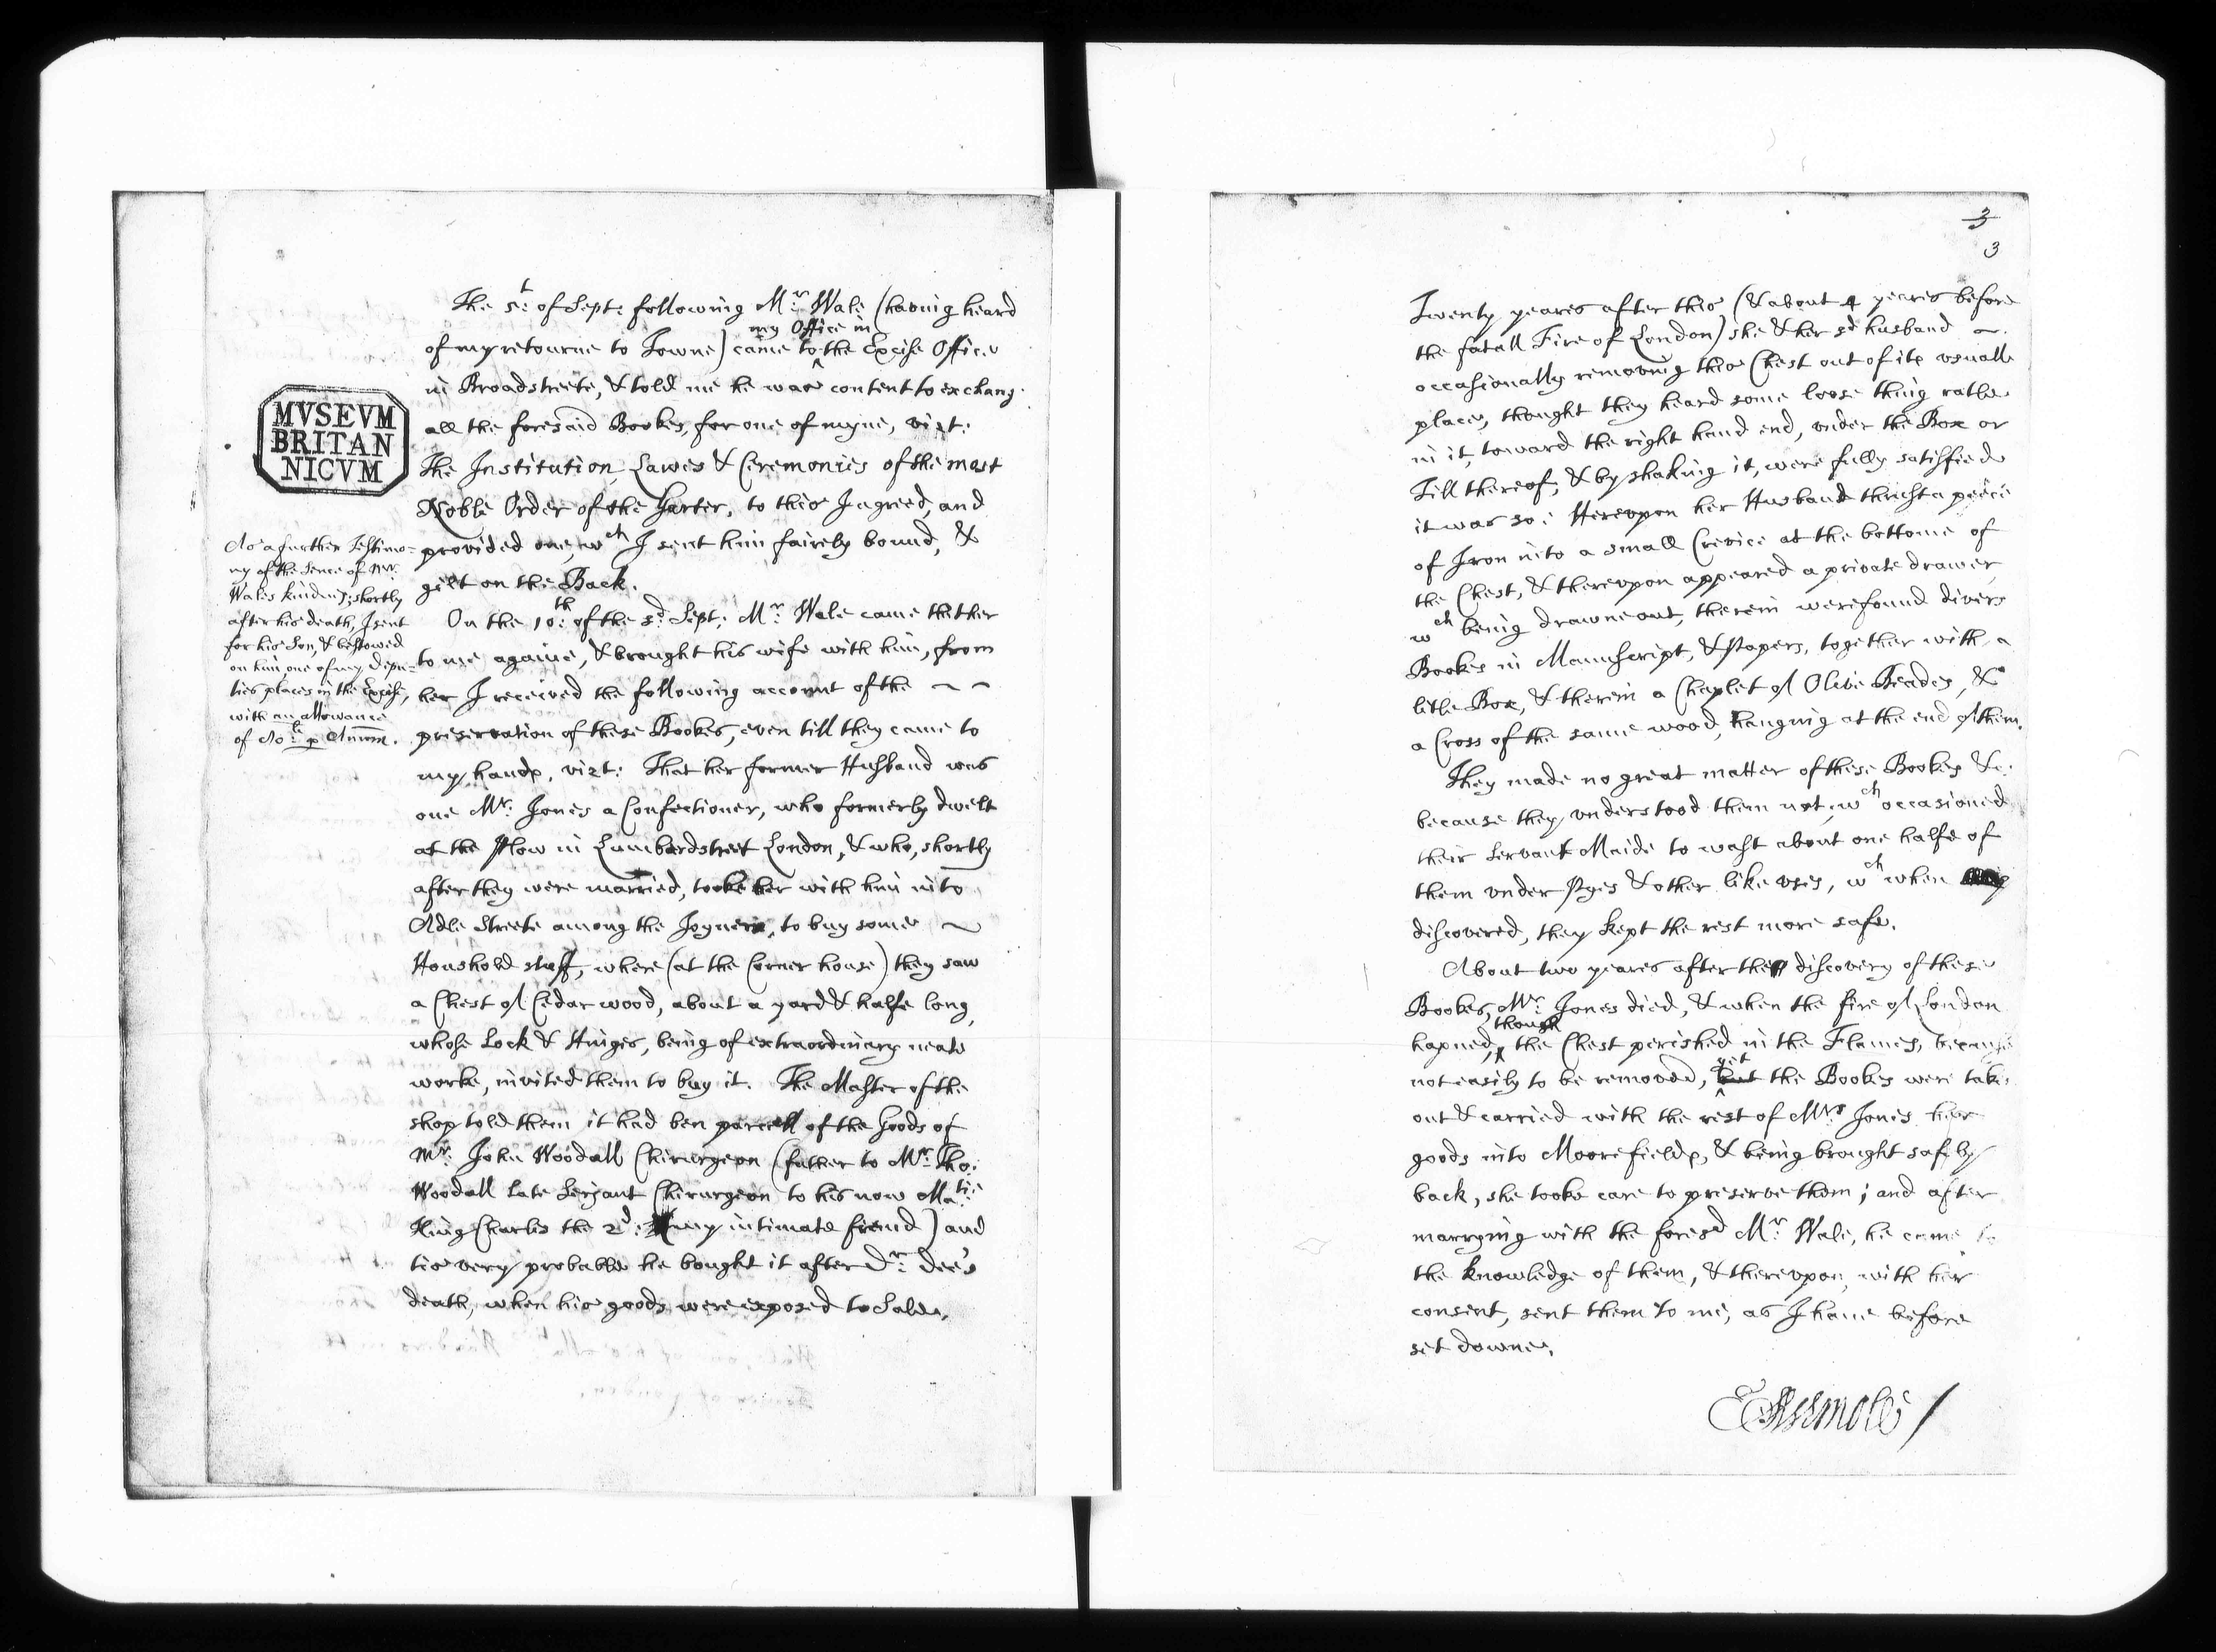 The 5t: of Sept: following Mr: Wale (having heard
my Office in
of my retourne to Towne) came to the Excise Office
in Broadstreete, & told me he was content to exchang
all the foresaid Bookes, for one of myne, vizt:
The Institution, Lawes & Ceremonies of the most
Noble Order of the Garter, to this I agreed, and
provided one, wch I sent him fairely bound, &
gilt on the Back.
On the 10th: of the sd: Sept: Mr: Wale came thether
to me againe, & brought his wife with him, from
her I received the following account of the
preservation of these Bookes, even till they came to
my hands, vizt: That her former Husband was
one Mr: Jones a Confectioner, who formerly dwelt
at the Plow in Lumbardstreet London, & who, shortly
after they were married, tooke her with him into
Adle Streete among the Joyners, to buy some
Houshold stuff, where (at the Corner house) they saw
a Chest of Cedar wood, about a yard & halfe long,
whose Lock & Hinges, being of extraordinary neate
worke, invited them to buy it. The Master of the
shop told them it had ben parcell of the Goods of
Mr: John Woodall Chirurgeon (father to Mr: Tho:
Woodall late Serjant Chirurgeon to his now Matie:
King Charles the 2d: my intimate friend) and
tis very probable he bought it after Dr: Dee's
death, when his goods were exposed to Sale.
MVSEVM
BRITAN
NICVM
As a further Testimo=
ny of the sence of Mr:
Wales kindnes; shortly
after his death, I sent
for his Son, & bestowed
on him one of my Depu=
ties places in the Excise,
with an allowance
of 80li: p Annum.
3
3
Twenty yeares after this (& about 4 yeares before
the fatall Fire of London) she & her sd husband
occasionally removing this Chest out of its usuall
place, thought they heard some loose thing ratle
in it, toward the right hand end, under the Box or
Till thereof, & by shaking it, were fully satisfied
it was so: Hereupon her Husband thrust a peece
of Iron into a small Crevice at the bottome of
the Chest, & thereupon appeared a private drawer,
wch being drawne out, therein were found divers
Bookes in Manuscript, & Papers, together with a
litle Box, & therein a Chaplet of Olive Beades, &
a Cross of the same wood, hanging at the end of them.
They made no great matter of these Bookes &c:
because they understood them not, wch occasioned
their Servant Maide to wast about one halfe of
them under Pyes & other like uses, wch when
discovered, they kept the rest more safe.
About two yeares after the discovery of these
Bookes, Mr: Jones died, & when the fire of London
though
hapned, the Chest perished in the Flames, because
yet
not easily to be removed, but the Bookes were taken
out & carried with the rest of Mrs Jones her
goods into Moorefields, & being brought safely
back, she tooke care to preserve them; and after
marrying with the foresd Mr: Wale, he came to
the knowledge of them, & thereupon, with her
consent, sent them to me, as I have before
set downe.
E Assmole